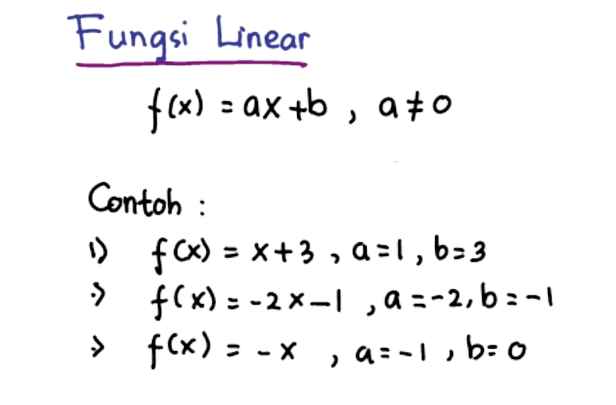 Fungsi Linear
f(x) = ax+b , a≠0
Contoh :
1) f(x) = x+3 , a=1 , b=3
:> f(x) = -2x-1 , a=-2, b=-1
:> f(x) = -x , a=-1 , b=0